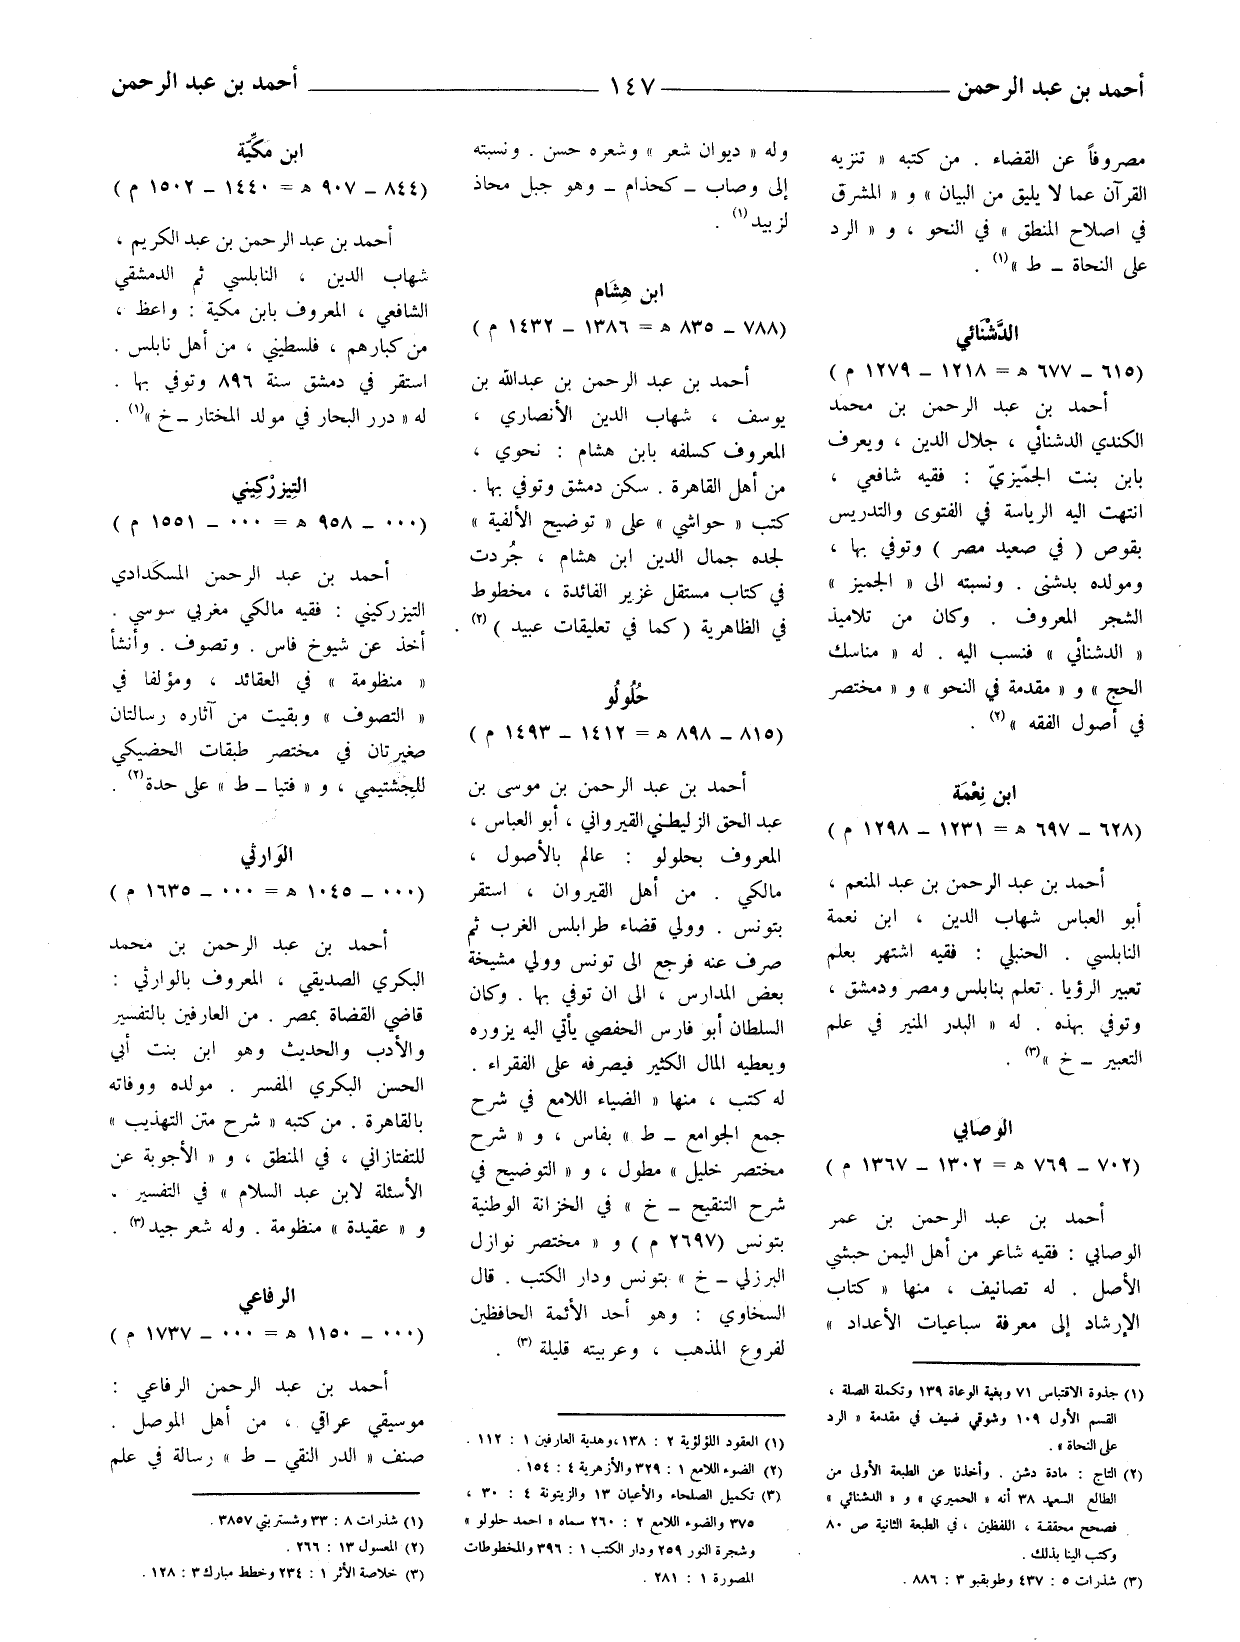 أحمد بن عبد الرحمن ١٤٧ أحمد بن عبد الرحمن
مصروفاً عن القضاء . من كتبه « تنزيه
القرآن عما لا يليق من البيان » و « المشرق
في اصلاح المنطق » في النحو ، و « الرد
على النحاة ــ ط »(١) .
الدَّشْنَائي
(٦١٥ ــ ٦٧٧ ه = ١٢١٨ ــ ١٢٧٩ م )
أحمد بن عبد الرحمن بن محمد
الكندي الدشنائي ، جلال الدين ، ويعرف
بابن بنت الجمّيزيّ : فقيه شافعي ،
انتهت اليه الرياسة في الفتوى والتدريس
بقوص ( في صعيد مصر ) وتوفي بها ،
ومولده بدشنى . ونسبته الى « الجميز »
الشجر المعروف . وكان من تلاميذ
« الدشنائي » فنسب اليه . له « مناسك
الحج » و « مقدمة في النحو » و « مختصر
في أصول الفقه »(٢) .
ابن نِعْمَة
(٦٢٨ ــ ٦٩٧ ه = ١٢٣١ ــ ١٢٩٨ م )
أحمد بن عبد الرحمن بن عبد المنعم ،
أبو العباس شهاب الدين ، ابن نعمة
النابلسي . الحنبلي : فقيه اشتهر بعلم
تعبير الرؤيا . تعلم بنابلس ومصر ودمشق ،
وتوفي بهذه . له « البدر المنير في علم
التعبير ــ خ »(٣) .
الوصابي
(٧٠٢ ــ ٧٦٩ ه = ١٣٠٢ ــ ١٣٦٧ م )
أحمد بن عبد الرحمن بن عمر
الوصابي : فقيه شاعر من أهل اليمن حبشي
الأصل . له تصانيف ، منها « كتاب
الإرشاد إلى معرفة سباعيات الأعداد »
(١) جذوة الاقتباس ٧١ وبغية الوعاة ١٣٩ وتكملة الصلة ،
القسم الأول ١٠٩ وشوقي ضيف في مقدمة « الرد
على النحاة » .
(٢) التاج : مادة دشن . وأخذنا عن الطبعة الأولى من
الطالع السعيد ٣٨ أنه « الحميري » و « الدشنائي »
فصحح محققة ، اللفظين ، في الطبعة الثانية ص ٨٠
وكتب الينا بذلك .
(٣) شذرات ٥ : ٤٣٧ وطوبقبو ٣ : ٨٨٦ .
وله « ديوان شعر » وشعره حسن . ونسبته
إلى وصاب ــ كحذام ــ وهو جبل محاذ
لزبيد(١) .
ابن هِشَام
(٧٨٨ ــ ٨٣٥ ه = ١٣٨٦ ــ ١٤٣٢ م )
أحمد بن عبد الرحمن بن عبدالله بن
يوسف ، شهاب الدين الأنصاري ،
المعروف كسلفه بابن هشام : نحوي ،
من أهل القاهرة . سكن دمشق وتوفي بها .
كتب « حواشي » على « توضيح الألفية »
لجده جمال الدين ابن هشام ، جُردت
في كتاب مستقل غزير الفائدة ، مخطوط
في الظاهرية ( كما في تعليقات عبيد )(٢) .
حُلُولُو
(٨١٥ ــ ٨٩٨ ه = ١٤١٢ ــ ١٤٩٣ م )
أحمد بن عبد الرحمن بن موسى بن
عبد الحق الزليطني القيرواني ، أبو العباس ،
المعروف بحلولو : عالم بالأصول ،
مالكي . من أهل القيروان ، استقر
بتونس . وولي قضاء طرابلس الغرب ثم
صرف عنه فرجع الى تونس وولي مشيخة
بعض المدارس ، الى ان توفي بها . وكان
السلطان أبو فارس الحفصي يأتي اليه يزوره
ويعطيه المال الكثير فيصرفه على الفقراء .
له كتب ، منها « الضياء اللامع في شرح
جمع الجوامع ــ ط » بفاس ، و « شرح
مختصر خليل » مطول ، و « التوضيح في
شرح التنقيح ــ خ » في الخزانة الوطنية
بتونس (٢٦٩٧ م ) و « مختصر نوازل
البرزلي ــ خ » بتونس ودار الكتب . قال
السخاوي : وهو أحد الأئمة الحافظين
لفروع المذهب ، وعربيته قليلة (٣) .
(١) العقود اللؤلؤية ٢ : ١٣٨ ،وهدية العارفين ١ : ١١٢ .
(٢) الضوء اللامع ١ : ٣٢٩ والأزهرية ٤ : ١٥٤ .
(٣) تكميل الصلحاء والأعيان ١٣ والزيتونة ٤ : ٣٠ ،
٣٧٥ والضوء اللامع ٢ : ٢٦٠ سماه « احمد حلولو »
وشجرة النور ٢٥٩ ودار الكتب ١ : ٣٩٦ والمخطوطات
المصورة ١ : ٢٨١ .
ابن مَكِّيَّة
(٨٤٤ ــ ٩٠٧ ه = ١٤٤٠ ــ ١٥٠٢ م )
أحمد بن عبد الرحمن بن عبد الكريم ،
شهاب الدين ، النابلسي ثم الدمشقي
الشافعي ، المعروف بابن مكية : واعظ ،
من كبارهم ، فلسطيني ، من أهل نابلس .
استقر في دمشق سنة ٨٩٦ وتوفي بها .
له « درر البحار في مولد المختار ــ خ »(١) .
التِيزرْكِيني
(٠٠٠ ــ ٩٥٨ ه = ٠٠٠ ــ ١٥٥١ م )
أحمد بن عبد الرحمن المسكَدادي
التيزركيني : فقيه مالكي مغربي سوسي .
أخذ عن شيوخ فاس . وتصوف . وأنشأ
« منظومة » في العقائد ، ومؤلفا في
« التصوف » وبقيت من آثاره رسالتان
صغيرتان في مختصر طبقات الحضيكي
للجِشتيمي ، و « فتيا ــ ط » على حدة(٢) .
الوَارثي
(٠٠٠ ــ ١٠٤٥ ه = ٠٠٠ ــ ١٦٣٥ م )
أحمد بن عبد الرحمن بن محمد
البكري الصديقي ، المعروف بالوارثي :
قاضي القضاة بمصر . من العارفين بالتفسير
والأدب والحديث وهو ابن بنت أبي
الحسن البكري المفسر . مولده ووفاته
بالقاهرة . من كتبه « شرح متن التهذيب »
للتفتازاني ، في المنطق ، و « الأجوبة عن
الأسئلة لابن عبد السلام » في التفسير .
و « عقيدة » منظومة . وله شعر جيد(٣) .
الرفاعي
(٠٠٠ ــ ١١٥٠ ه = ٠٠٠ ــ ١٧٣٧ م )
أحمد بن عبد الرحمن الرفاعي :
موسيقي عراقي ، من أهل الموصل .
صنف « الدر النقي ــ ط » رسالة في علم
(١) شذرات ٨ : ٣٣ وشستربتي ٣٨٥٧ .
(٢) المعسول ١٣ : ٢٦٦ .
(٣) خلاصة الأثر ١ : ٢٣٤ وخطط مبارك ٣ : ١٢٨ .